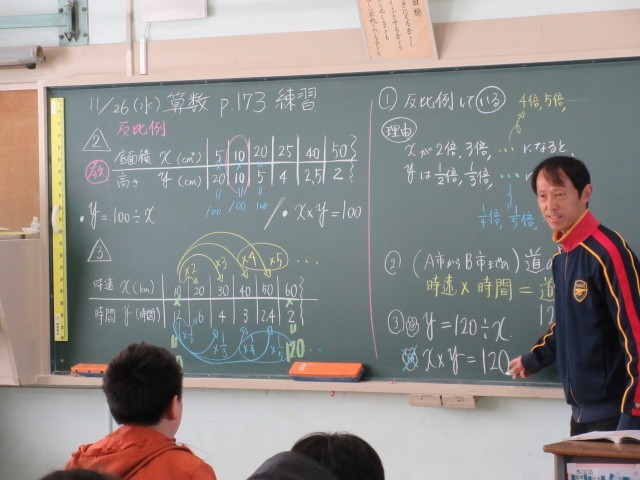 11/26(水) 算数 p.173 練習
反比例
2
底面積 x (cm²) 5 10 20 25 40 50
高さ y (cm) 20 10 5 4 2.5 2
100 100 100
・y=100÷x
・x×y=100
3
×2 ×3 ×4 ×5 …
時速 x (km) 10 20 30 40 50 60
時間 y (時間) 12 6 4 3 2.4 2
120
① 反比例している
4倍,5倍,…
理由
xが2倍,3倍,…になると,
yは1/2倍,1/3倍,…
1/4倍,1/5倍,
② (A市からB市までの) 道
時速×時間=道
③ y=120÷x
x×y=120